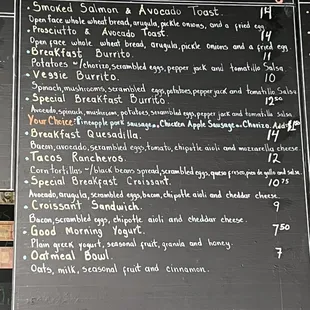 • Smoked Salmon & Avocado Toast. 14
Open face whole wheat bread, arugula, pickle onions, and a fried egg
• Prosciutto & Avocado Toast. 14
Open face whole wheat bread, arugula, pickle onions and a fried egg
• Breakfast Burrito. 11
Potatoes w/chorizo, scrambled eggs, pepper jack and tomatillo Salsa
• Veggie Burrito. 10
Spinach, mushrooms, scrambled eggs, potatoes, pepper jack and tomatillo Salsa.
• Special Breakfast Burrito. 12.50
Avocado, spinach, mushroom, potatoes, scrambled eggs, pepper jack and tomatillo salsa
Your Choice: Pineapple pork sausage, Chicken Apple Sausage, Chorizo Add
• Breakfast Quesadilla. 14
Bacon, avocado, scrambled eggs, tomato, chipotle aioli and mozzarella cheese.
• Tacos Rancheros. 12
Corn tortillas w/black beans spread, scrambled eggs, queso fresco, pico de gallo and salsa.
• Special Breakfast Croissant. 10.75
Avocado, arugula, scrambled eggs, bacon, chipotle aioli and cheddar cheese.
• Croissant Sandwich. 9
Bacon, scrambled eggs, chipotle aioli and cheddar cheese.
• Good Morning Yogurt. 7.50
Plain greek yogurt, seasonal fruit, granola and honey.
• Oatmeal Bowl. 7
Oats, milk, seasonal fruit and cinnamon.